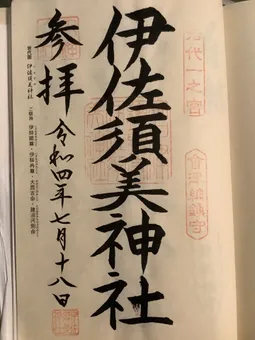 岩代一之宮
會津總鎮守
伊佐須美神社
参拝
令和四年七月十八日
伊佐須美神社
ご祭神 伊弉諾尊・伊弉冉尊・大毘古命・建沼河別命